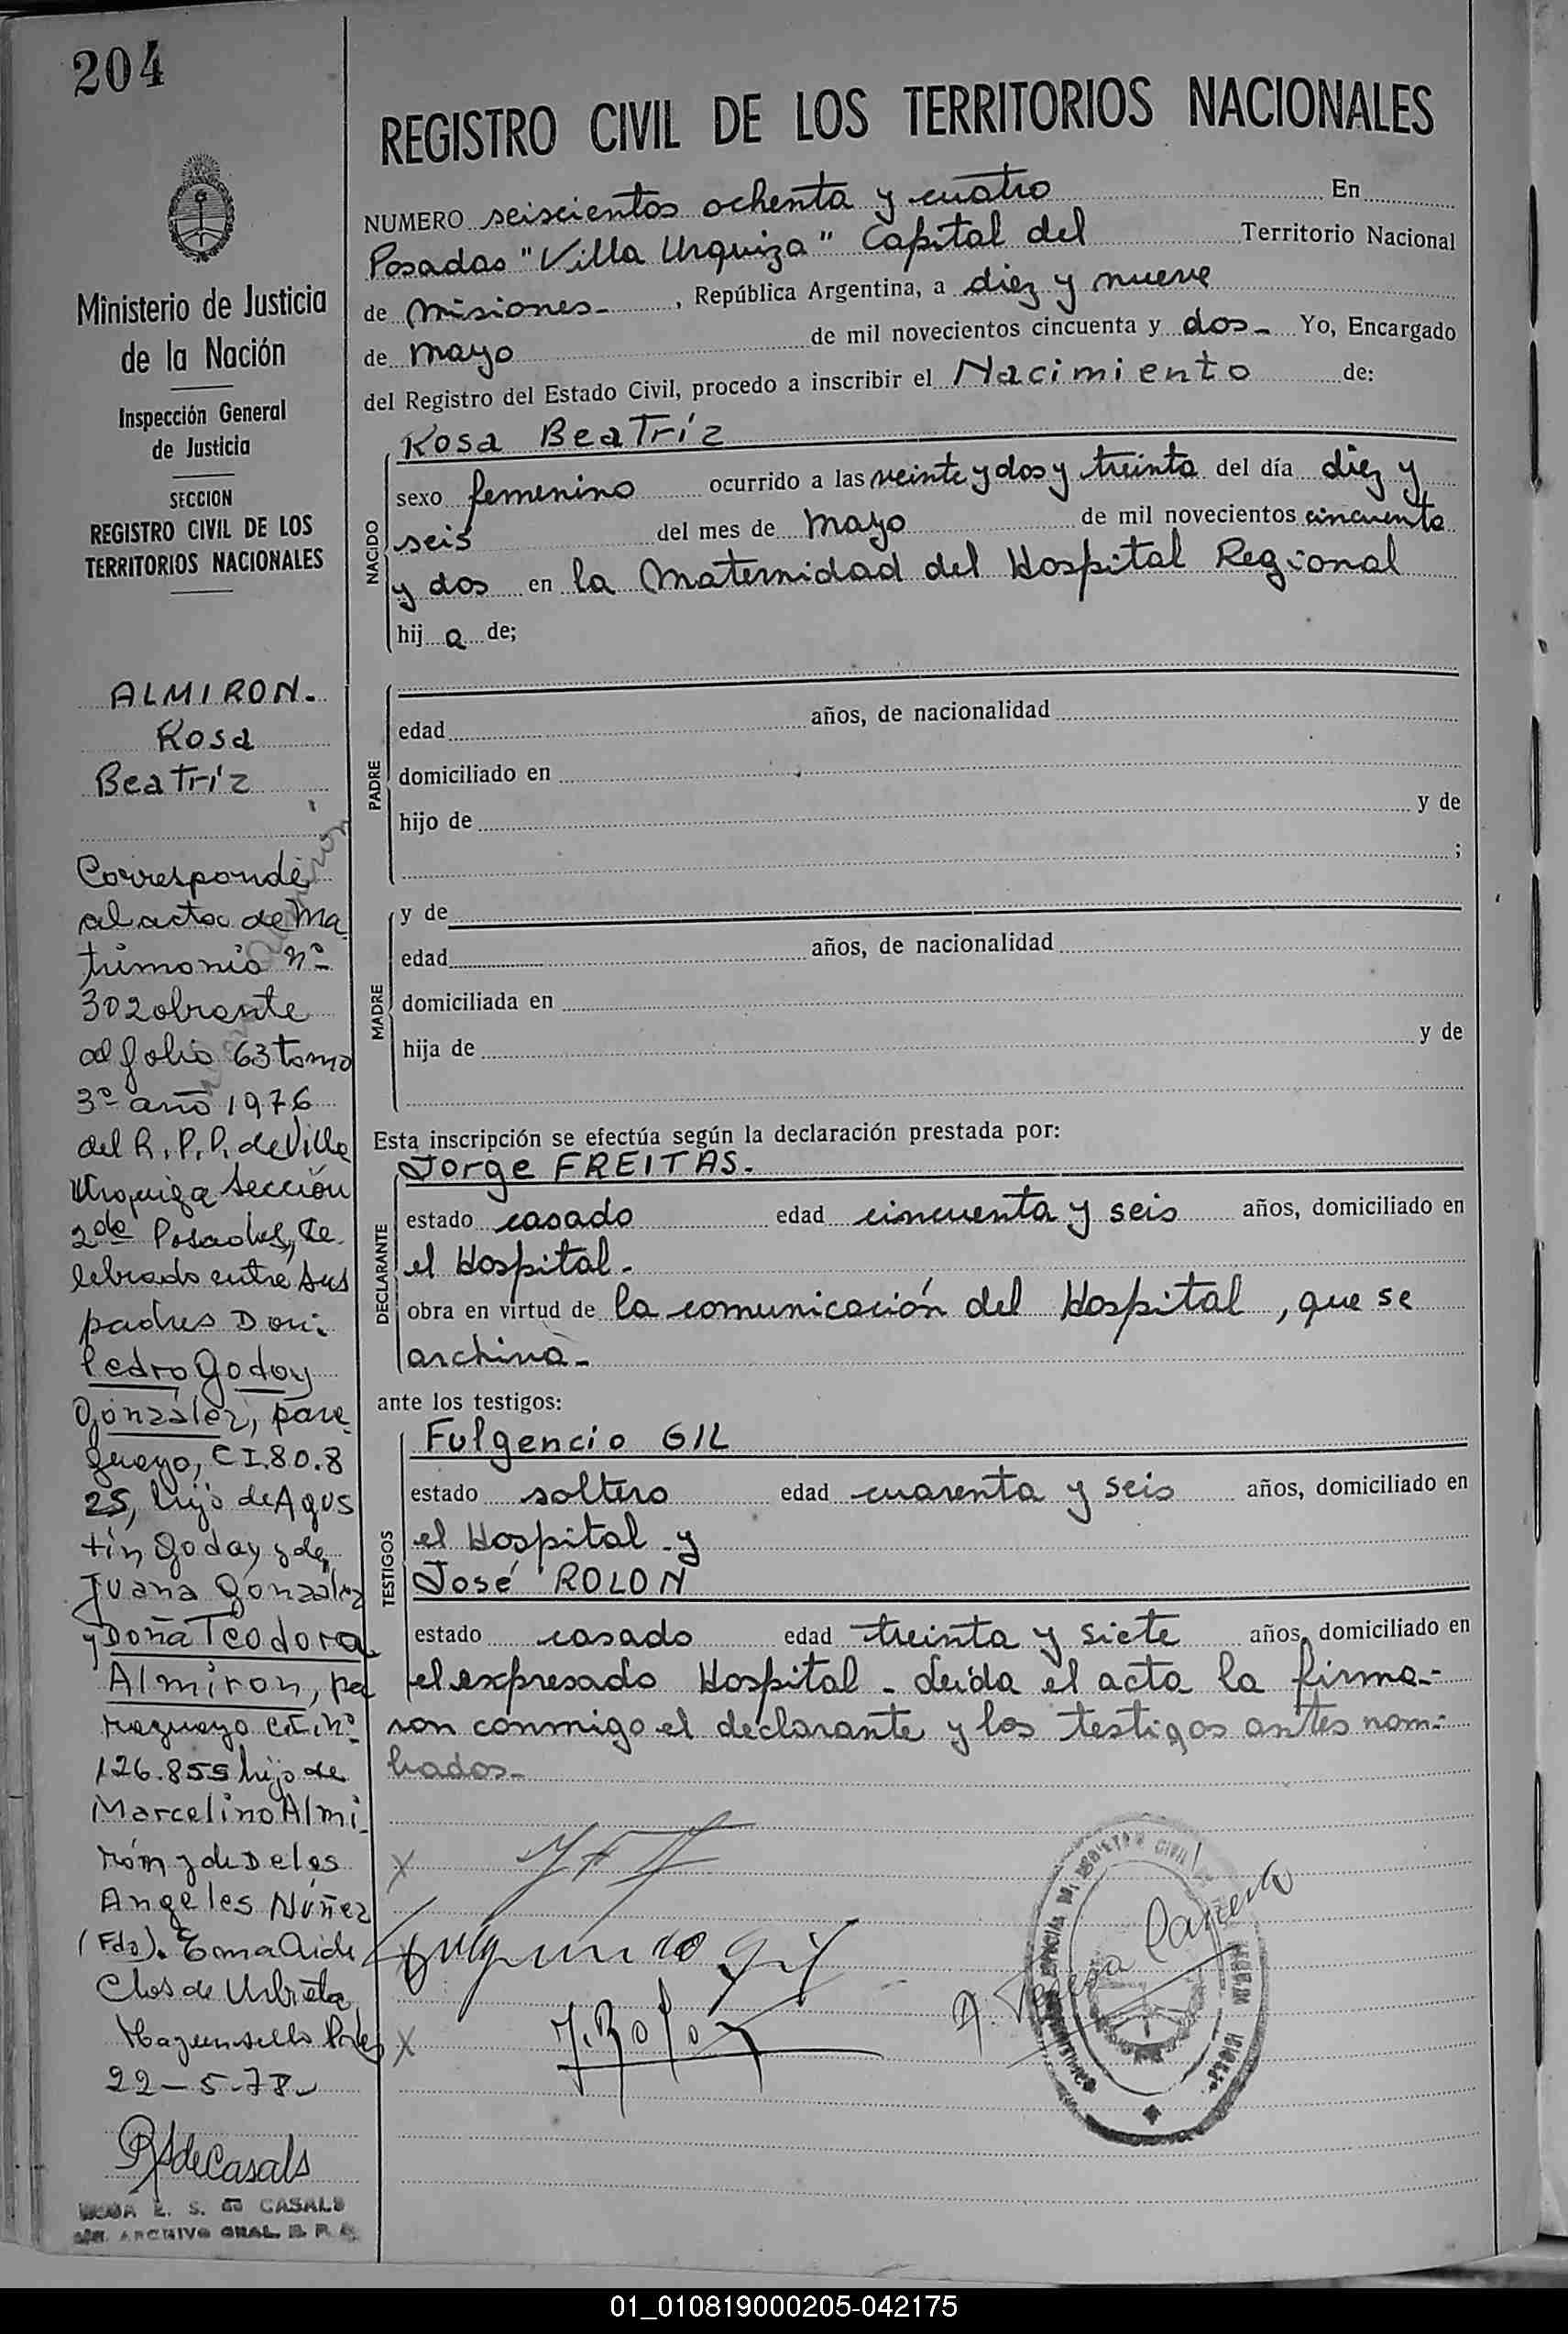 204
Ministerio de Justicia
de la Nación
Inspección General
de Justicia
SECCION
REGISTRO CIVIL DE LOS
TERRITORIOS NACIONALES
ALMIRON.
Rosa
Beatríz
Corresponde
al acta de Ma
trimonio Nº
302 obrante
al folio 63 tomo
3º año 1976
del R.P.P. de Villa
Urquiza Sección
2da Posadas, Ce
lebrado entre sus
padres Don:
Pedro Godoy
González, para
guayo, C.I. 80.8
25, hijo de Agus
tín Godoy y de
Juana González
y Doña Teodora
Almiron, pa
raguayo C.I. Nº
126.855 hijo de
Marcelino Almi
rón y de De los
Angeles Núñez
(Fdo). Ema Aide
Clos de Urbieta
Hay un sello Pdas
22-5-78
RSdeCasals
E. S. de CASALS
ARCHIVO GRAL. R. P. P.
REGISTRO CIVIL DE LOS TERRITORIOS NACIONALES
NUMERO seiscientos ochenta y cuatro En
Posadas "Villa Urquiza" Capital del Territorio Nacional
de Misiones- , República Argentina, a diez y nueve
de mayo de mil novecientos cincuenta y dos- Yo, Encargado
del Registro del Estado Civil, procedo a inscribir el Nacimiento de:
NACIDO
Rosa Beatríz
sexo femenino ocurrido a las veinte y dos y treinta del día diez y
seis del mes de mayo de mil novecientos cincuenta
y dos en la Maternidad del Hospital Regional
hij a de;
PADRE
edad años, de nacionalidad
domiciliado en
hijo de y de
;
MADRE
y de
edad años, de nacionalidad
domiciliada en
hija de y de
Esta inscripción se efectúa según la declaración prestada por:
DECLARANTE
Jorge FREITAS.
estado casado edad cincuenta y seis años, domiciliado en
el Hospital.
obra en virtud de la comunicación del Hospital, que se
archiva-
ante los testigos:
TESTIGOS
Fulgencio GIL
estado soltero edad cuarenta y seis años, domiciliado en
el Hospital - y
José ROLON
estado casado edad treinta y siete años, domiciliado en
el expresado Hospital - Leída el acta la firma-
ron conmigo el declarante y los testigos antes nom-
brados-
x
Fulgencio Gil
x J. Rolon
01_010819000205-042175